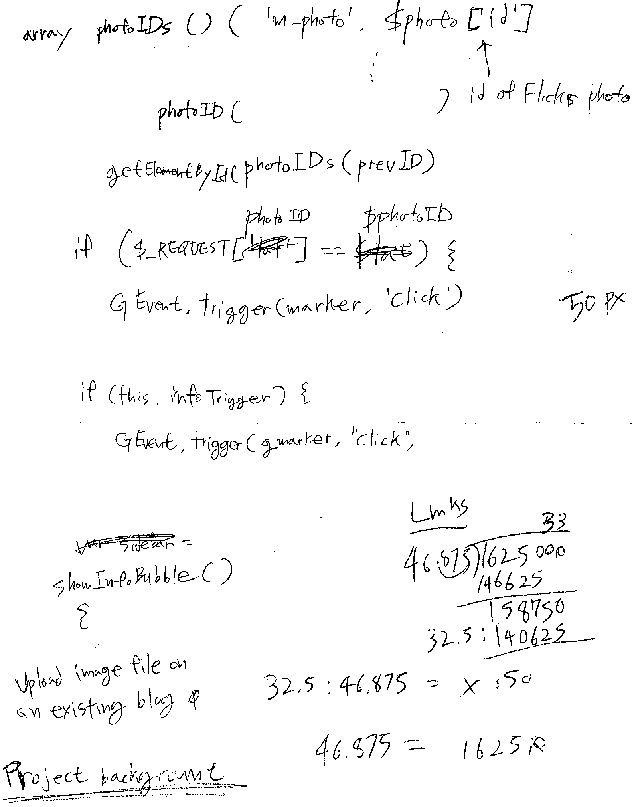 array photoIDs () ( 'm-photo'. $photo ['id']
) id of Flickr photo
photoID (
getElementById( photoIDs (prevID)
photoID $photoID
if ($_REQUEST[ ] == ) {
GEvent. trigger (marker, 'click')
50 PX
if (this. infoTrigger) {
GEvent. trigger ( gmarker, "click",
Links
33
46.875)1625000
146625
158750
32.5 : 140625
sidebar =
showInfoBubble ()
{
Upload image file on
an existing blog
32.5 : 46.875 = x : 50
46.875 = 1625
Project background